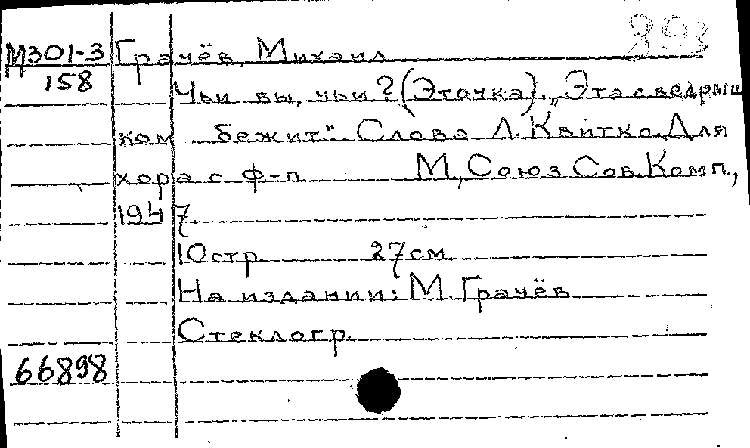 М301-3 Грачёв, Михаил
158 Чьи вы, чьи? (Эточка). „Эта с ведрыш
ком бежит". Слова Л. Квитко. Для
хора с ф-п М., Союз Сов. Комп.,
1947.
10 стр. 27 см
На издании: М. Грачёв
Стеклогр.
66898